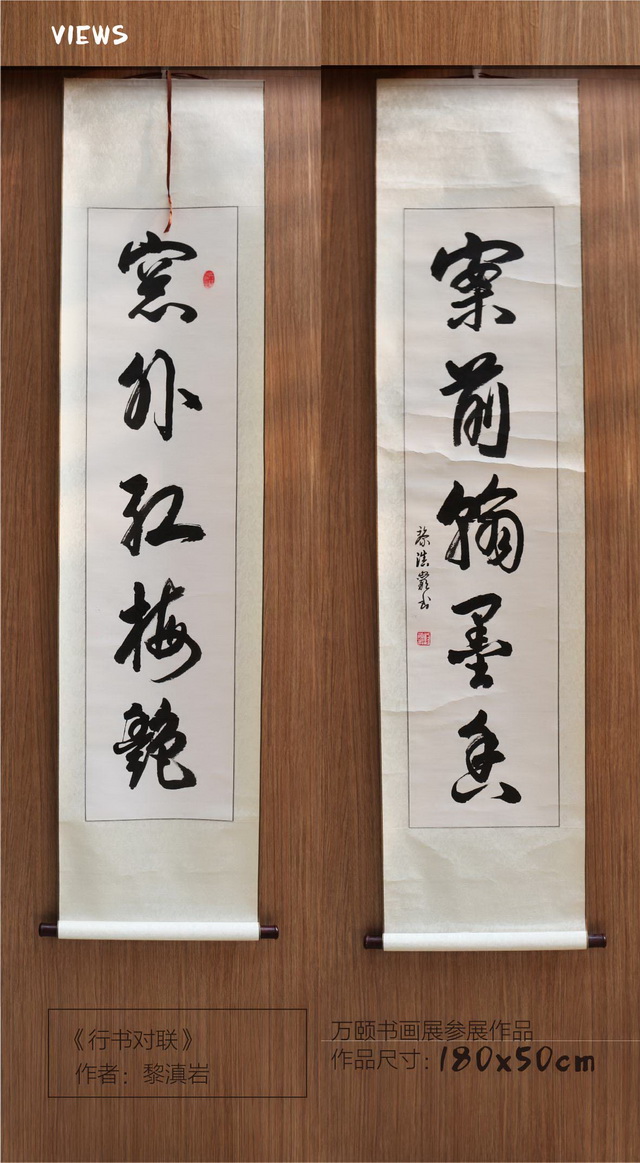 VIEWS
窓外红梅艶
案前翰墨香
黎滇巖书
《行书对联》
作者：黎滇岩
万颐书画展参展作品
作品尺寸：180x50cm